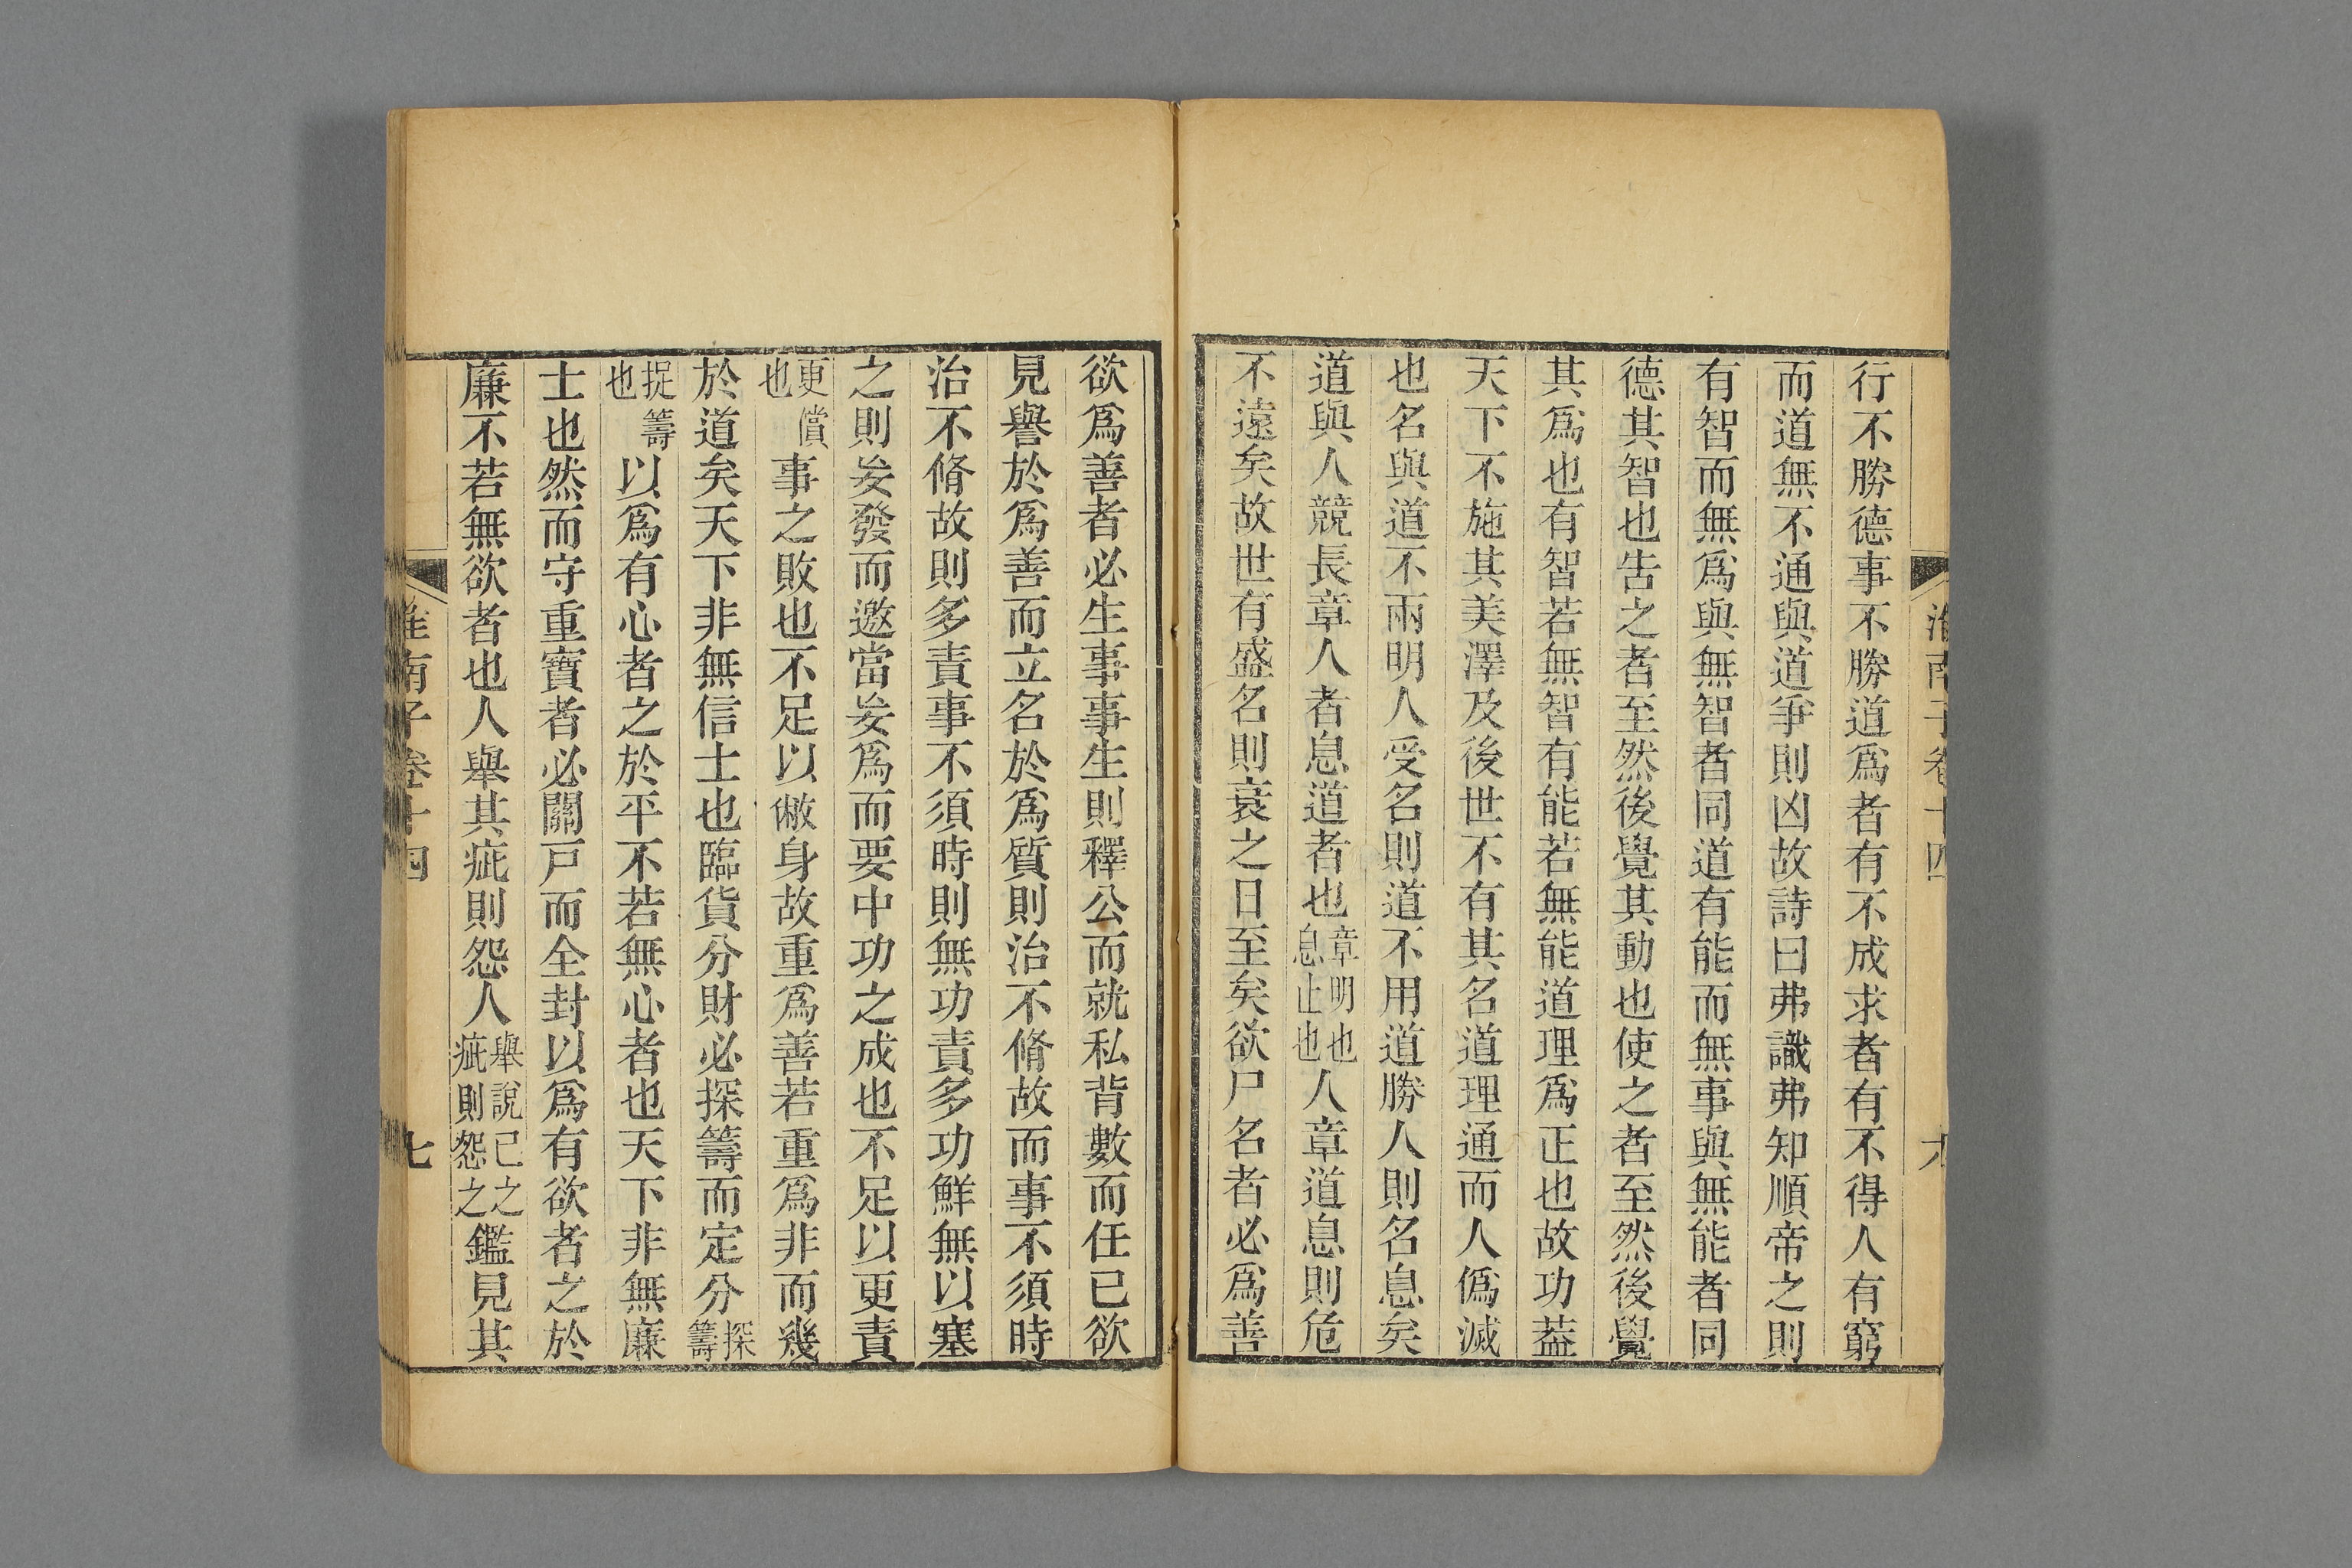 淮南子卷十四
行不勝德事不勝道爲者有不成求者有不得人有窮
而道無不通與道爭則凶故詩曰弗識弗知順帝之則
有智而無爲與無智者同道有能而無事與無能者同
德其智也告之者至然後覺其動也使之者至然後覺
其爲也有智若無智有能若無能道理爲正也故功葢
天下不施其美澤及後世不有其名道理通而人僞滅
也名與道不兩明人受名則道不用道勝人則名息矣
道與人競長章人者息道者也章明也息止也人章道息則危
不遠矣故世有盛名則衰之日至矣欲尸名者必爲善
欲爲善者必生事事生則釋公而就私背數而任已欲
見譽於爲善而立名於爲質則治不脩故而事不須時
治不脩故則多責事不須時則無功責多功鮮無以塞
之則妄發而邀當妄爲而要中功之成也不足以更責
更償也事之敗也不足以獘身故重爲善若重爲非而幾
於道矣天下非無信士也臨貨分財必探籌而定分探籌
捉籌也以爲有心者之於平不若無心者也天下非無廉
士也然而守重寶者必關戸而全封以爲有欲者之於
廉不若無欲者也人舉其疵則怨人舉說已之疵則怨之鑑見其
淮南子卷十四
七